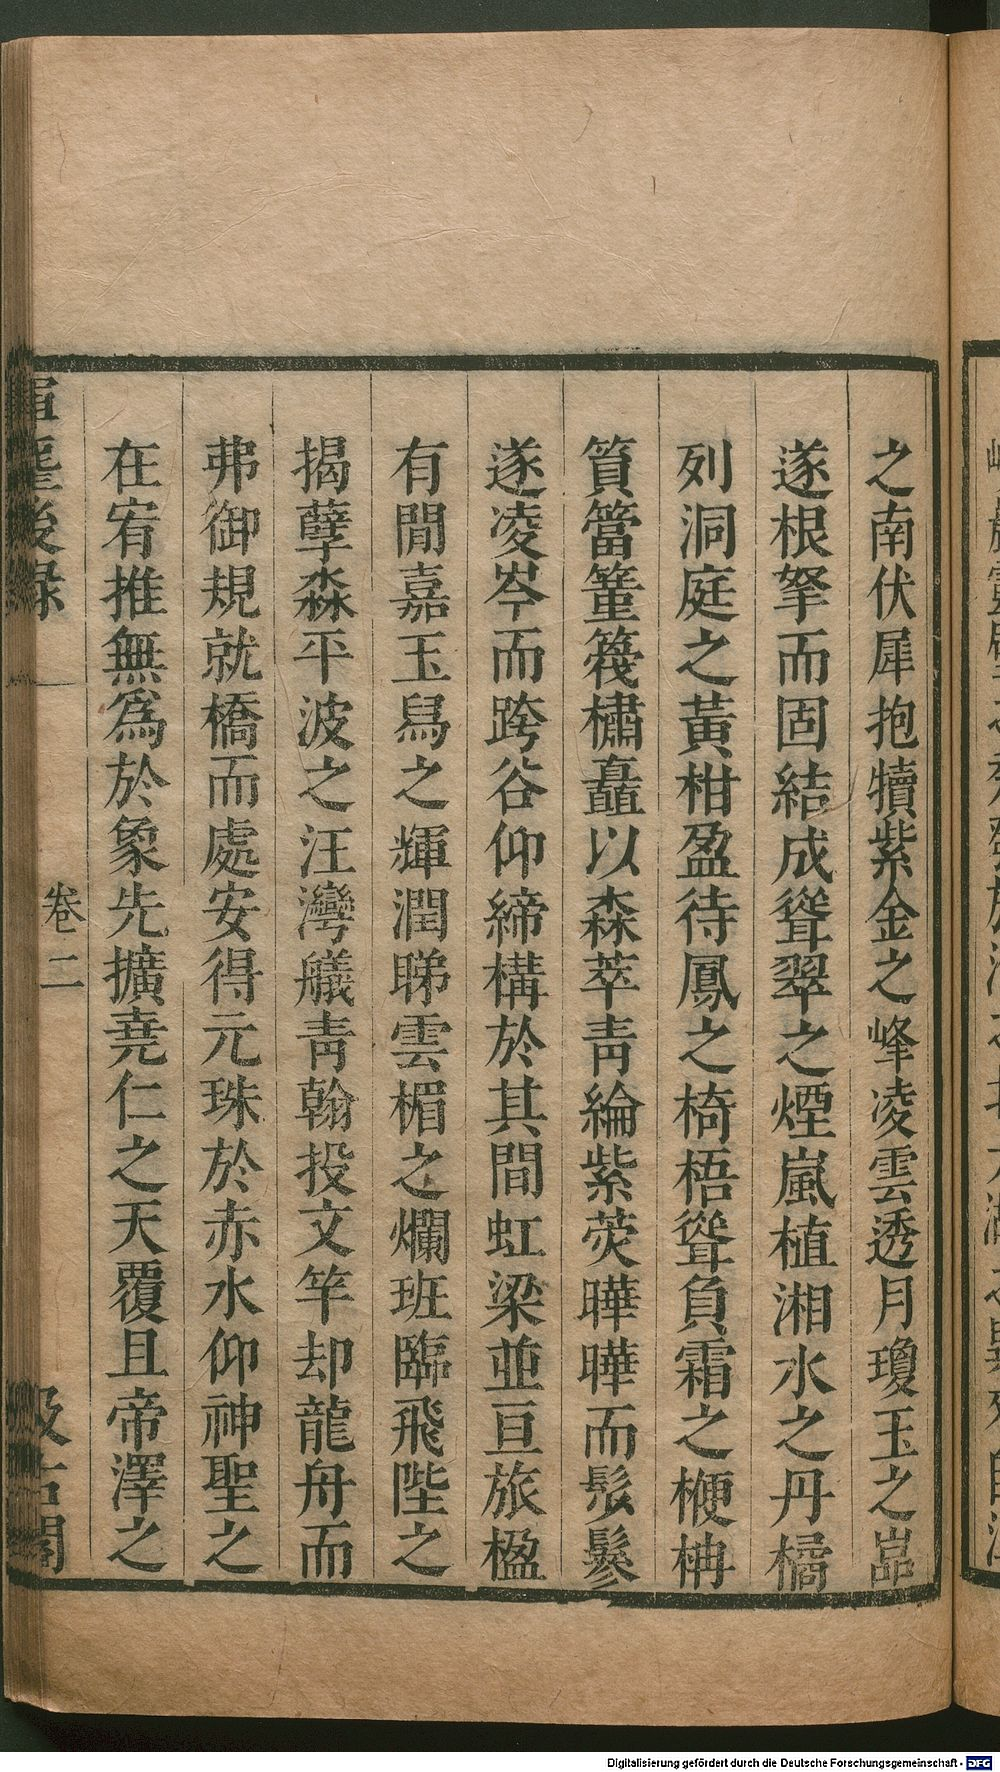 之南伏犀抱犢紫金之峰凌雲透月瓊玉之嵓
遂根拏而固結成聳翠之煙嵐植湘水之丹橘
列洞庭之黃柑盈待鳳之椅梧聳負霜之楩柟
篔簹篁筏橚矗以森萃靑綸紫茭曄曄而髟鬖
遂凌岑而跨谷仰締構於其間虹梁並亘旅楹
有閒嘉玉舃之輝潤睇雲楣之爛班臨飛陛之
揭孽淼平波之汪灣艤靑翰投文竿却龍舟而
弗御規就橋而處安得元珠於赤水仰神聖之
在宥推無爲於象先擴堯仁之天覆且帝澤之
後録
卷二
汲古閣
Digitalisierung gefördert durch die Deutsche Forschungsgemeinschaft - DFG